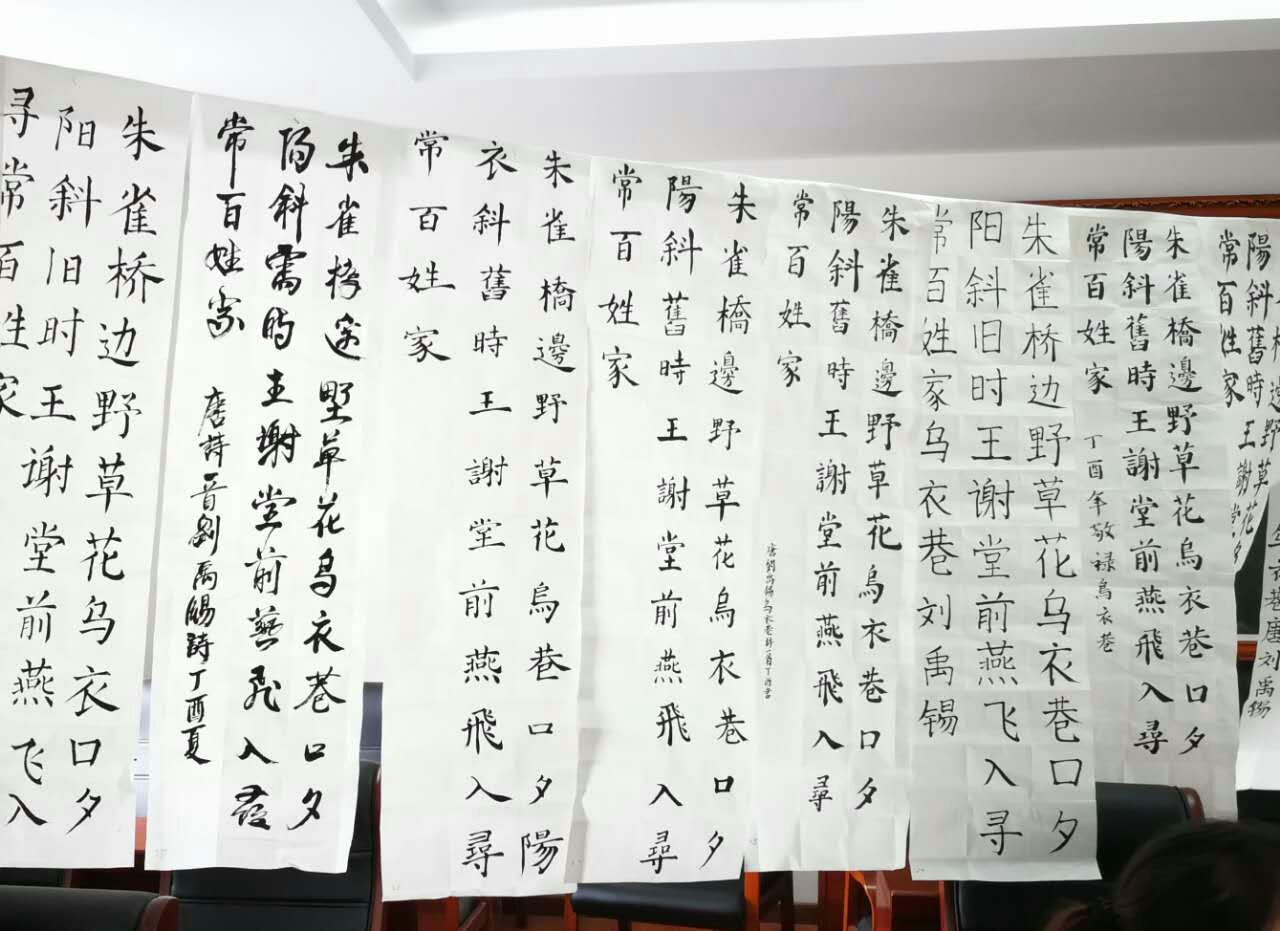 邊野草花夕
陽斜舊時王謝堂
常百姓家
衣巷唐刘禹锡
朱雀橋邊野草花烏衣巷口夕
陽斜舊時王謝堂前燕飛入尋
常百姓家
丁酉年敬禄烏衣巷
朱雀桥边野草花乌衣巷口夕
阳斜旧时王谢堂前燕飞入寻
常百姓家乌衣巷刘禹锡
朱雀橋邊野草花烏衣巷口夕
陽斜舊時王謝堂前燕飛入尋
常百姓家
唐劉禹錫烏衣巷詩一首丁酉書
朱雀橋邊野草花烏衣巷口夕
陽斜舊時王謝堂前燕飛入尋
常百姓家
朱雀橋邊野草花烏衣巷口夕陽
衣斜舊時王謝堂前燕飛入尋
常百姓家
朱雀橋邊野草花烏衣巷口夕
陽斜舊時王謝堂前燕飛入尋
常百姓家
唐詩一首劉禹錫詩丁酉夏
朱雀桥边野草花乌衣巷口夕
阳斜旧时王谢堂前燕飞入
寻常百姓家